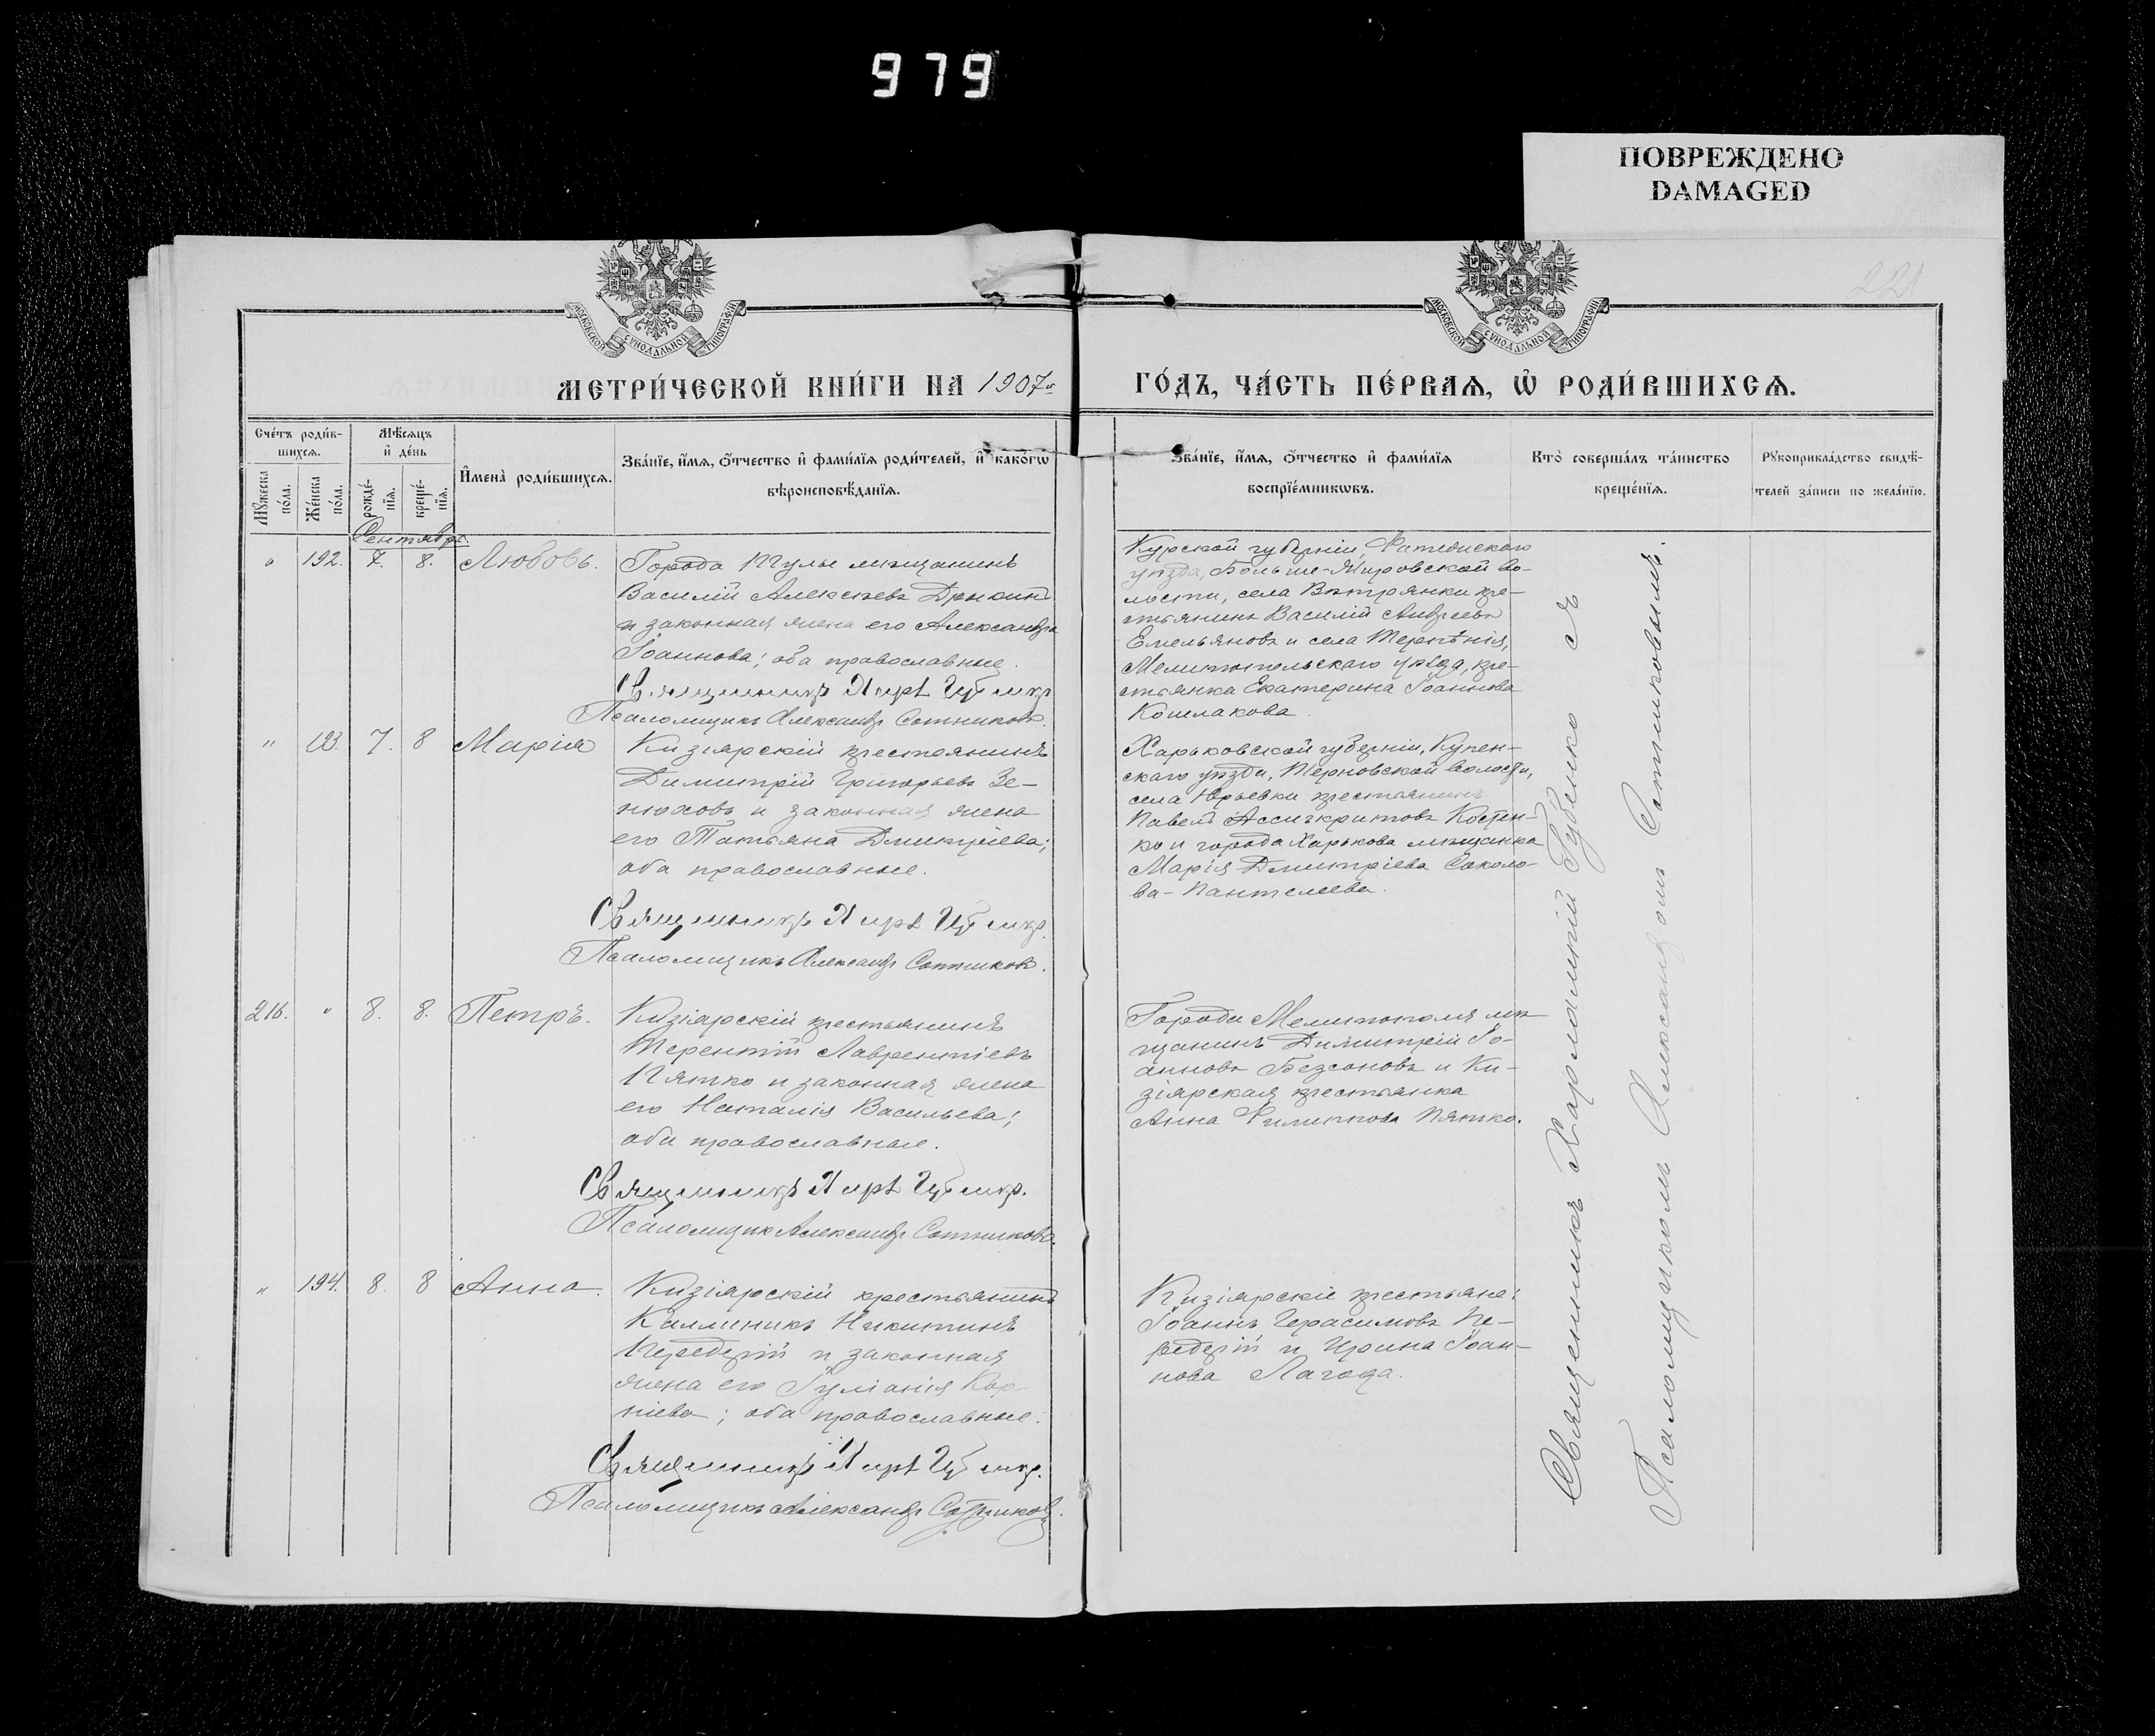 979
ПОВРЕЖДЕНО
DAMAGED
221
МОСКОВСКОЙ СѴНОДАЛЬНОЙ ТИПОГРАФІИ
МОСКОВСКОЙ СѴНОДАЛЬНОЙ ТИПОГРАФІИ
МЕТРИ́ЧЕСКОЙ КНИ́ГИ НА 1907й
ГО́ДЪ, ЧА́СТЬ ПЕ́РВАѦ, Ѡ҆ РОДИ́ВШИХСѦ.
Сче́тъ роди́в-
шихсѧ.
Мꙋ́жеска по́ла.
Же́нска по́ла.
Мѣ́сѧцъ
и҆ де́нь
рожде́-
нїѧ.
креще́-
нїѧ.
И҆мена̀ роди́вшихсѧ.
Зва́нїе, и҆́мѧ, ѻ҆́тчество и҆ фами́лїѧ роди́телей, и҆ како́гѡ
вѣроисповѣ́данїѧ.
Зва́нїе, и҆́мѧ, ѻ҆́тчество и҆ фами́лїѧ
воспрїе́мникѡвъ.
Кто̀ соверша́лъ та́инство
креще́нїѧ.
Рꙋкоприкла́дство свидѣ́-
телей за́писи по жела́нїю.
Сентябрь.
" 192. 7. 8. Любовь.
Города Тулы мѣщанинъ
Василій Алексѣевъ
и законная жена его Александра
Іоаннова; оба православные.
Священникъ Харл. Губенко
Псаломщикъ Александръ Сотниковъ.
Курской губерніи, Фатежскаго
уѣзда, Больше-Жировской во-
лости, села Вѣтрянки кре-
стьянинъ Василій Андреевъ
Емельяновъ и села Терпѣнія,
Мелитопольскаго уѣзда, кре-
стьянка Екатерина Іоаннова
Кошлакова.
" 193. 7. 8 Марія
Кизіярскій крестьянинъ
Димитрій Григорьевъ Зе-
нюховъ и законная жена
его Татьяна Дмитріева;
оба православные.
Священникъ Харл. Губенко.
Псаломщикъ Александръ Сотниковъ.
Харьковской губерніи, Купен-
скаго уѣзда, Терновской волости,
села Юрьевки крестьянинъ
Павелъ Ассигкритовъ Костен-
ко и города Харькова мѣщанка
Марія Дмитріева Соколо-
ва-Пантелеева.
216. " 8. 8. Петръ.
Кизіярскій крестьянинъ
Терентій Лаврентіевъ
Пятко и законная жена
его Наталія Васильева;
оба православные.
Священникъ Харл. Губенко.
Псаломщикъ Александръ Сотниковъ.
Города Мелитополя мѣ-
щанинъ Димитрій Іо-
анновъ Безсоновъ и Ки-
зіярская крестьянка
Анна Филиппова Пятко.
" 194. 8. 8 Анна.
Кизіярскій крестьянинъ
Каллиникъ Никитинъ
Передерій и законная
жена его Іуліанія Кор-
ніева; оба православные.
Священникъ Харл. Губенко.
Псаломщикъ Александръ Сотниковъ.
Кизіярскіе крестьяне:
Іоаннъ Герасимовъ Пе-
редерій и Ирина Іоан-
нова Лагода.
Священникъ Харлампій Губенко съ
Псаломщикомъ Александромъ Сотниковымъ.